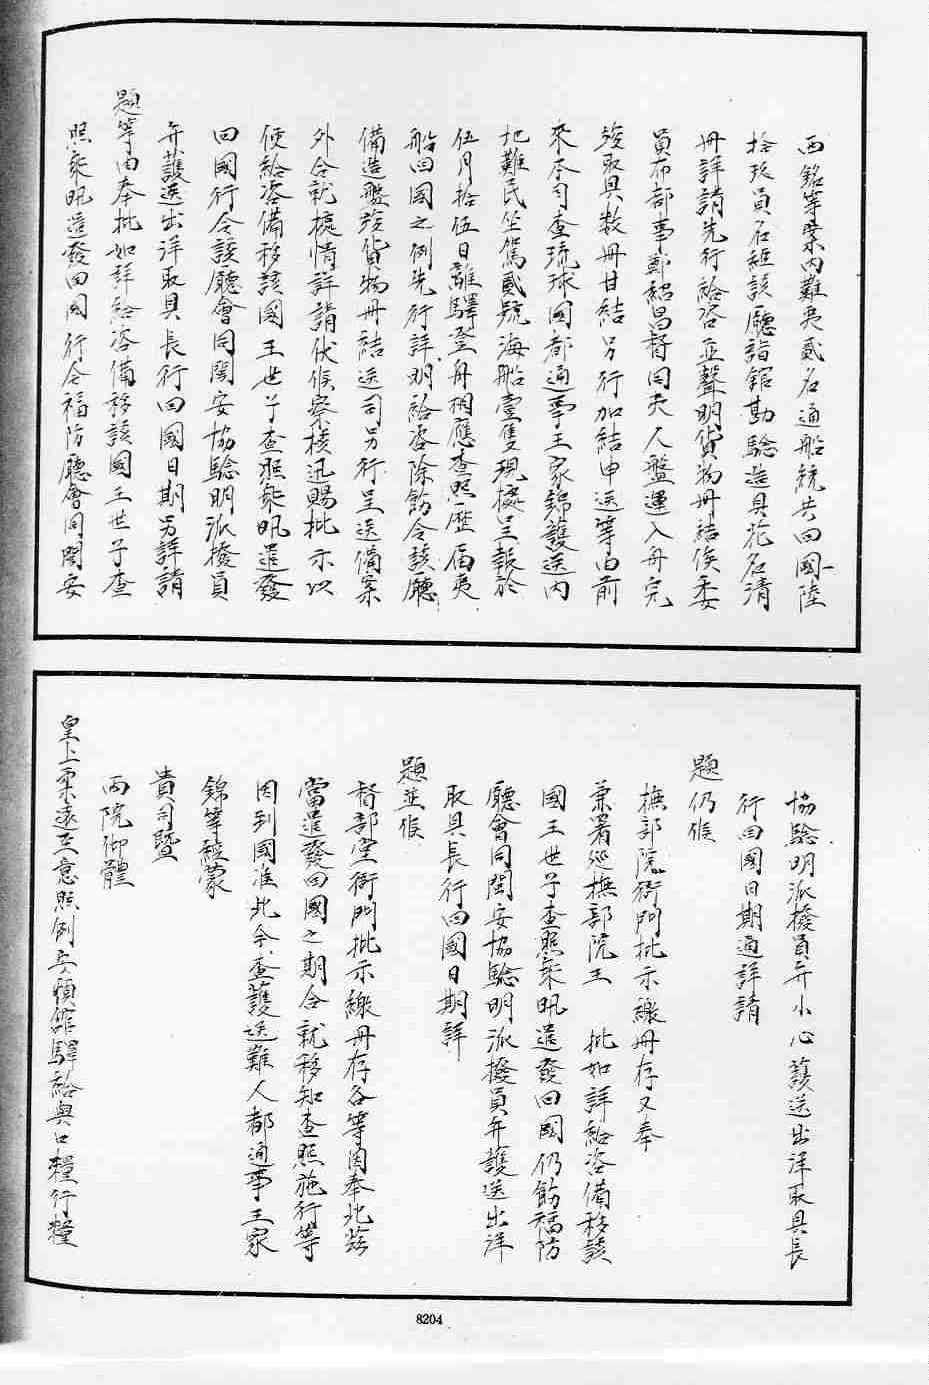 西銘等案內難夷貳名通船統共回國一陸
拾玖員名經該廳詣館勘驗造具花名清
冊詳請先行給咨並聲明貨物冊結俟委
員布部事鄭紹昌督同夷人盤運入舟完
竣取具數冊甘結另行加結申送等由前
來本司查琉球國都通事王家錦護送內
地難民坐駕貳號海船壹隻現據呈報於
伍月拾伍日離驛登舟相應查照歷屆夷
船回國之例先行詳明給咨除飭令該廳
備造盤驗貨物冊結送司另行呈送備案
外合就據情詳請伏候察核迅賜批示以
便給咨備移該國王世子查照秉昽遣發
回國行令該廳會同閩安協驗明派撥員
弁護送出洋取具長行回國日期另詳請
題等由奉批如詳給咨備移該國王世子查
照秉昽遣發回國行令福防廳會同閩安
協驗明派撥員弁小心護送出洋取具長
行回國日期通詳請
題仍候
撫部院衙門批示繳冊存又奉
兼署巡撫部院王 批如詳給咨備移該
國王世子查照秉昽遣發回國仍飭福防
廳會同閩安協驗明派撥員弁護送出洋
取具長行回國日期詳
題並候
督部堂衙門批示繳冊存各等因奉此茲
當遣發回國之期合就移知查照施行等
因到國准此今查護送難人都通事王家
錦等經蒙
貴司暨
兩院仰體
皇上柔遠至意照例安頓館驛給與口糧行糧
8204